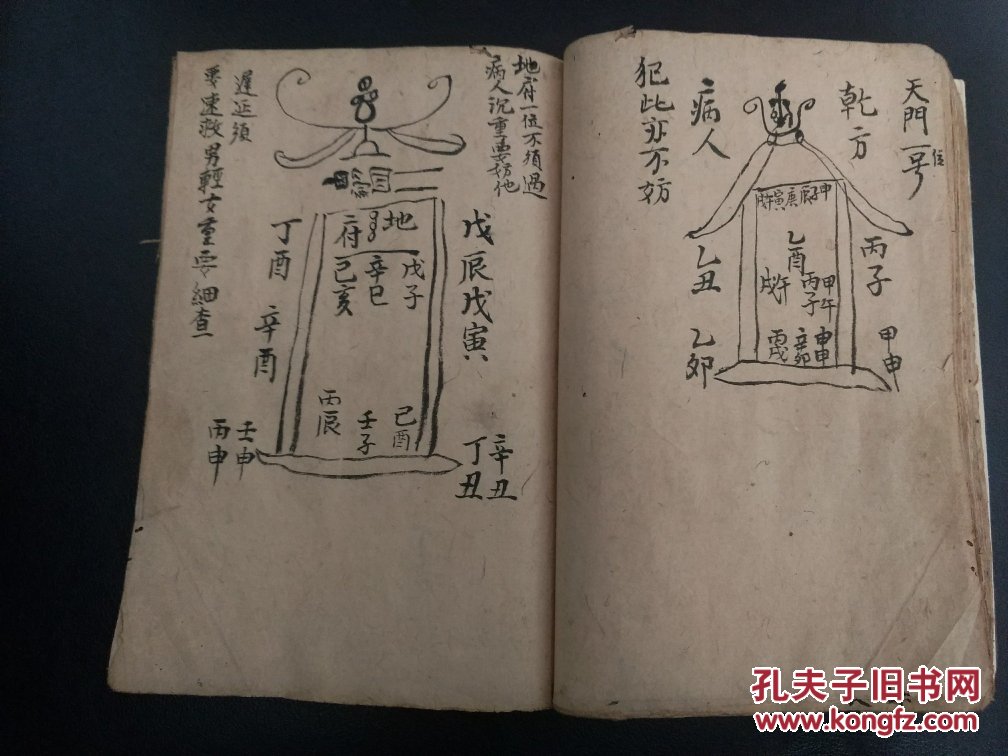 天門一号
位
乾方
丙子
甲申
乙酉
丙子
甲午
戊午
辛卯
甲申
病人
乙丑
乙卯
犯此亦不妨
地府一位不須遇
病人沉重要妨他
戊辰戊寅
辛丑
丁丑
地
府
戊子
辛巳
己亥
己酉
壬子
丙辰
丁酉
辛酉
壬申
丙申
遲延須
要速救男輕女重要細查
孔夫子旧书网
www.kongfz.com